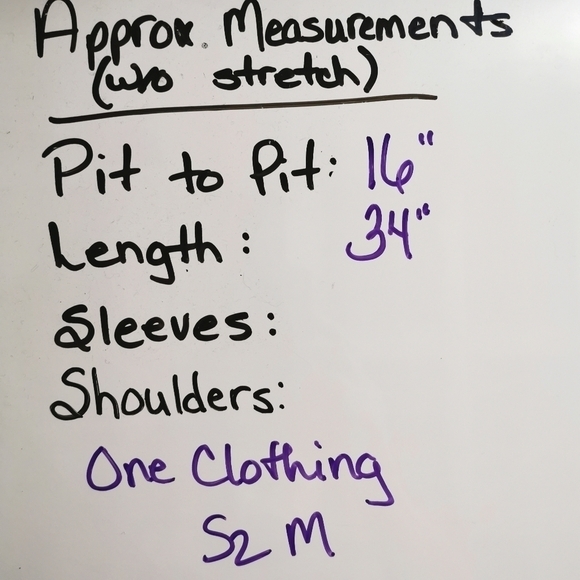 Approx. Measurements
(w/o stretch)
Pit to Pit: 16"
Length: 34"
Sleeves:
Shoulders:
One Clothing
Sz M